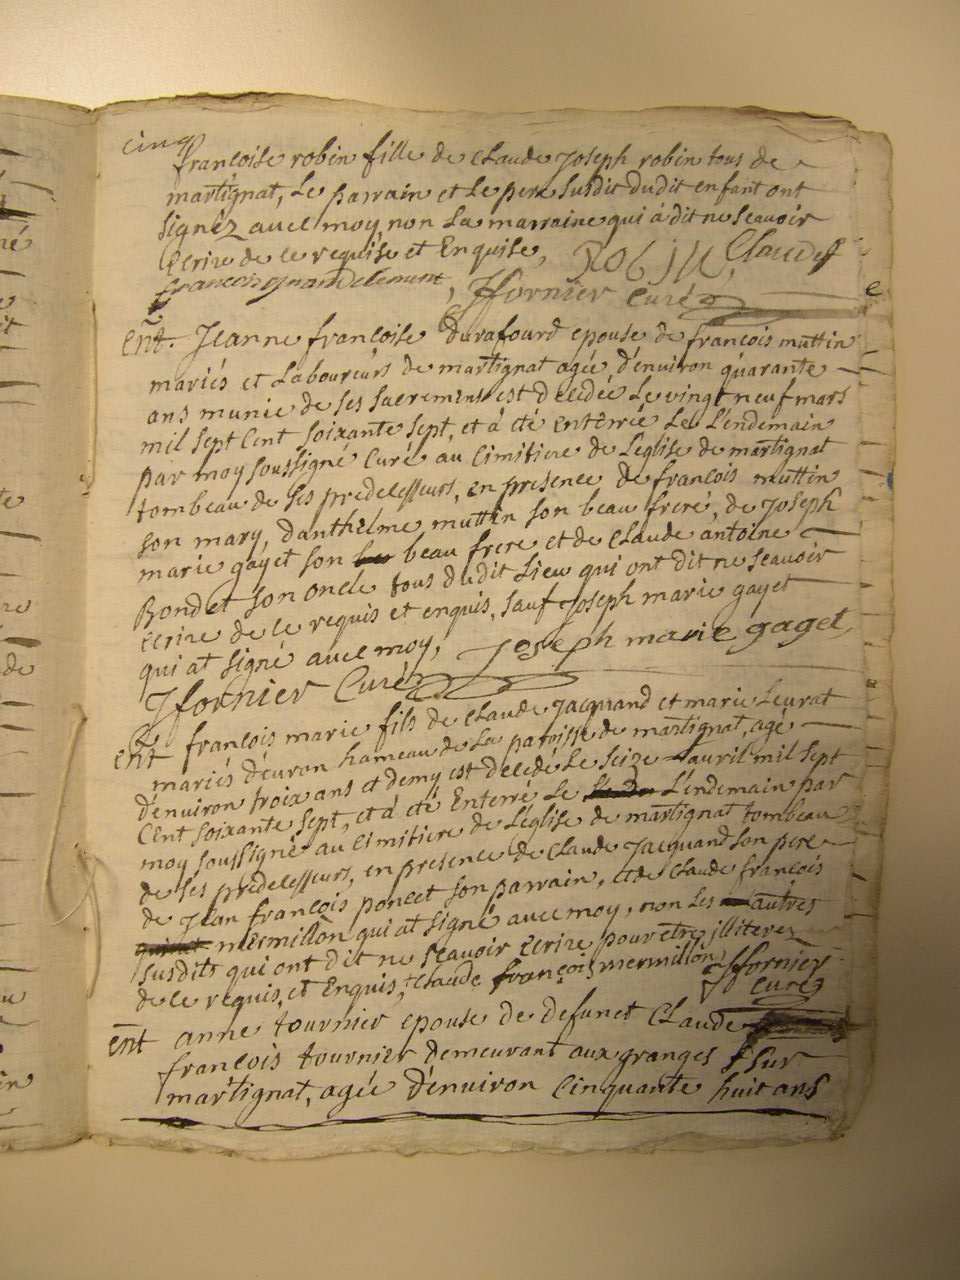 cinq
francoise robin fille de Claude Joseph robin tous de
martignat, Le parrain et Le pere susdit dudit enfant ont
signéz avec moy, non La marraine qui à dit ne scavoir
Ecrire de ce requise et Enquise, Robin, Claude
francois grandclement, Jfornier curé
Ent. Jeanne francoise durafourd epouse de francois muttin
mariés et Laboureurs de martignat agée d'environ quarante
ans munie de ses sacremens est decedée Le vingt neuf mars
mil sept cent soixante sept, et à été enterrée Le L'endemain
par moy soussigné curé au cimitiere de L'eglise de martignat
tombeau de ses predecesseurs, en presence de francois muttin
son mary, d'anthelme muttin son beau frere, de Joseph
marie gayet son beau frere et de Claude antoine
Rondet son oncle tous dudit Lieu qui ont dit ne scavoir
ecrire de ce requis et enquis, sauf Joseph marie gayet
qui at signé avec moy, Joseph marie gaget,
Jfornier Curé
Ent francois marie fils de Claude Jacquand et marie Levrat
mariés d'evron hameau de La paroisse de martignat, agé
d'environ troix ans et demy est decedé Le seize avril mil sept
Cent soixante sept, et à été Enterré Le L'endemain par
moy soussigné au cimitiere de L'eglise de martignat tombeau
de ses predecesseurs, en presence de Claude Jacquand son pere
de Jean francois poncet son parrain, et de Claude francois
mermillon qui at signé avec moy, non Les autres
susdits qui ont dit ne scavoir Ecrire pour etre illiterez
de ce requis et Enquis, Claude francois mermillon Jfornier
curé
Ent anne tournier epouse de defunct Claude
francois tournier demeurant aux granges sur
martignat, agée d'environ cinquante huit ans